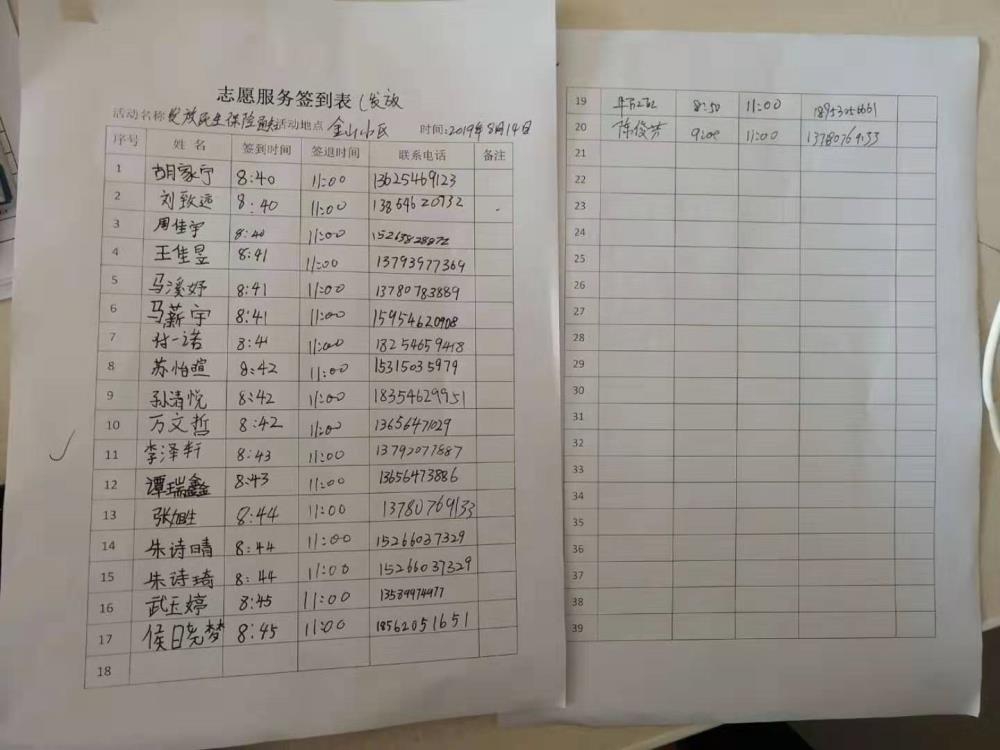 志愿服务签到表（发放
活动名称 发放民生保险 活动地点 金山小区 时间：2019年8月14日
序号 姓名 签到时间 签退时间 联系电话 备注
1 胡家宁 8:40 11:00 13625469123
2 刘致远 8:40 11:00 13854620732
3 周佳宇 8:40 11:00
4 王佳昱 8:41 11:00 13793977369
5 马溪妤 8:41 11:00 13780783889
6 马薪宇 8:41 11:00 15954620908
7 付一诺 8:41 11:00 18254659418
8 苏怡暄 8:42 11:00 15315035979
9 孙清悦 8:42 11:00 18354629951
10 万文哲 8:42 11:00 13656471029
11 李泽轩 8:43 11:00 13792077887
12 谭瑞鑫 8:43 11:00 13656473886
13 张旭生 8:44 11:00 13780769133
14 朱诗晴 8:44 11:00 15266037329
15 朱诗琦 8:44 11:00 15266037329
16 武玉婷 8:45 11:00
17 侯日尧梦 8:45 11:00 18562051651
18
19 8:50 11:00
20 陈俊芳 9:00 11:00 13780769133
21
22
23
24
25
26
27
28
29
30
31
32
33
34
35
36
37
38
39